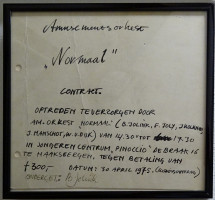 Amusementsorkest
"Normaal"
CONTRACT.
OPTREDEN TE VERZORGEN DOOR
AM. ORKEST "NORMAAL" (B. JOLINK, F. JOLY,
J. MANSCHOT, W. TERBURG) VAN 14.30 TOT 17.30
IN JONGEREN CENTRUM, PINOCCIO" DE BRAAK 16
TE HAAKSBERGEN, TEGEN BETALING VAN
ƒ 300,- DATUM: 30 APRIL 1975.
ONDERGET: B. Jolink